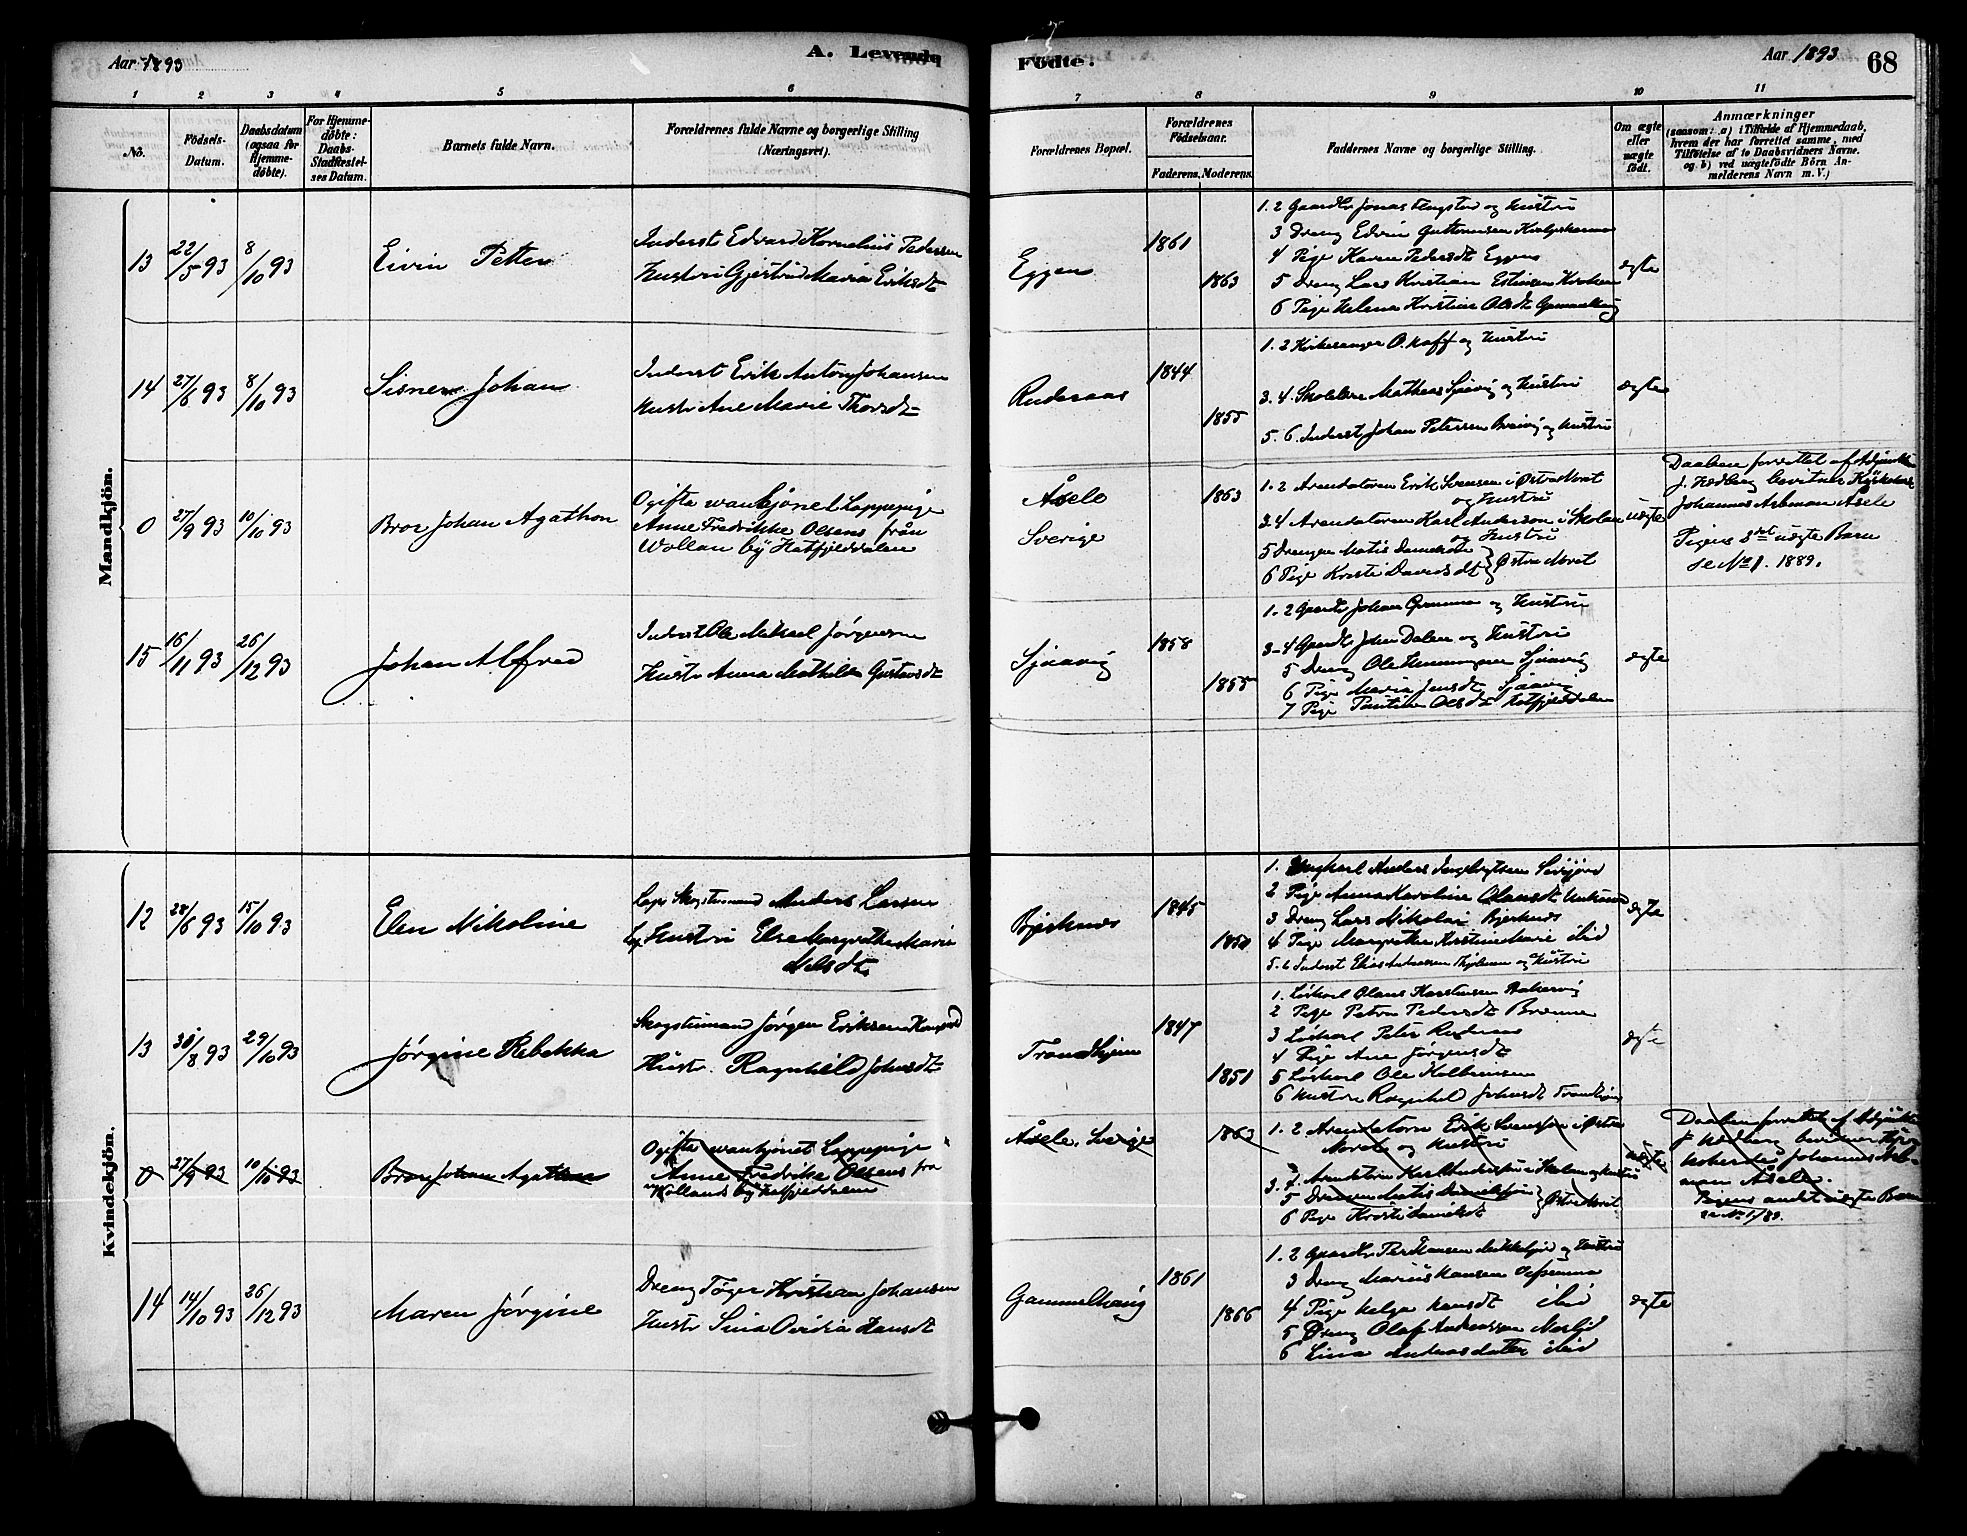 Aar 1893
A. Levende
Fødte.
Aar 1893
68
1 2 3 4 5 6 7 8 9 10 11
No.
Fødsels-
Datum.
Daabsdatum
(ogsaa for
Hjemme-
døbte).
For Hjemme-
døbte:
Daabs-
Stadfæstel-
ses Datum.
Barnets fulde Navn.
Forældrenes fulde Navne og borgerlige Stilling
(Næringsvei).
Forældrenes Bopæl.
Forældrenes
Fødselsaar.
Faderens. Moderens.
Faddernes Navne og borgerlige Stilling.
Om ægte
eller
uægte
født.
Anmærkninger
(saasom: a) i Tilfælde af Hjemmedaab,
hvem der har forrettet samme, med
Tilføielse af to Daabsvidners Navne.
og b) ved uægtefødte Børn An-
melderens Navn m. V.)
Mandkjön.
13 22/5 93 8/10 93 Eivin Petter
Inderst Edvard Kornelius Pedersen
Hustru Gjertrud Maria Eriksdt
Eggen 1861 1863
1. 2 Gaardbr Jonas og Hustru
3 Dreng Edvin
4 Pige Karen Pedersdt Eggen
5 Dreng Lars Kristian Estensen
6 Pige Helena Kristine Olsdt Gammelhaug
ægte
14 27/6 93 8/10 93 Johan
Inderst Erik Anton Johansen
Hustr Ane Marie Thorsdt
Rudsaas 1844 1855
1. 2 Kirkesanger O. Hoff og Hustru
3. 4. Skolelære Mathias Sjaavig og Hustru
5. 6. Inderst Johan Petersen og Hustru
ægte
0 27/9 93 10/10 93 Bror Johan Agathon
Ogifta qvankjönet Lappepige
Anne Fredrikke Olsens från
Wollan by Hatfjelddalen
Åsele
Sverige
1863
1. 2 Arendatoren Erik Svensson i Östra Noret
og Hustru
3. 4 Arendatoren Karl Anderson i Skolan
og Hustru
5 Drengen Matis Danielson
6 Pige Kristi Davidsdt } Østra Noret
uægte
Daaben forrettet af Adjunkten
J. Hedberg bevitnar Kyrkoherde
Johannes Asbman Åsele
Pigens 2det uægte Barn
se No 1. 1889.
15 16/11 93 26/12 93 Johan Alfred
Inderst Ole Mikael Jørgensen
Hustr Anna Mathilde Gustavsdt
Sjaavig 1858 1855
1. 2 Gaardb Johan og Hustru
3-4 Gaardb John Dalen og Hustru
5 Dreng Ole Hemmingsen Sjaavig
6 Pige Maria Jensdt Sjaavig
7 Pige Pauline Olsdt Hatfjelddalen
ægte
Kvindekjön.
12 28/6 93 15/10 93 Elen Nikoline
Lap. Skogstumand Anders Larsen
Hustru Else Margrethe Marie
Nilsdt
Bjerknes 1845 1850
1. Ungkarl Anders
2 Pige Anna Karoline Olausdt
3 Dreng Lars Nikolai Bjerknes
4 Pige Margrethe Kristine Marie ibid
5. 6 Inderst Elias Andersen og Hustru
ægte
13 30/8 93 29/10 93 Jørgine Rebekka
Skogstumand Jørgen Eriksen
Hustr. Ragnhild Johnsdt
Trondhjem 1847 1851
1. Løskarl Olaus Karstensen
2 Pige Petra Pedersdt Brenna
3 Løskarl Peter
4 Pige Ane Jørgensdt
5 Løskarl Ole Kolbeinsen
6 Hustru Ragnhild Johnsdt
ægte
0 27/9 93 10/10 93 Bror Johan Agathon
Ogifte qvankjönet Lappepige
Anne Fredrikke Olsens fra
Wollands by Hatfjelddalen
Åsele, Sverige 1863
1. 2 Arendatorn Erik Svensson i Østra
Noret og Hustru
3. 4. Arendatorn Karl Anderson i Skolan og Hustru
5 Drengen Matis Danielsson
6 Pige Kristi } Østra Noret
uægte
Daaben forrettet af Adjunkten
J. Hedberg bevitner Kyr-
koherde Johannes Asb-
man Åsele.
Pigens andet uægte Barn
se No 1/89.
14 14/10 93 26/12 93 Maren Jørgine
Dreng Tøger Kristian Johansen
Hustr Sina Ovidia Hansdt
Gammelhaug 1861 1866
1. 2 Gaardbr Per Hansen og Hustru
3 Dreng Marius Hansen
4 Pige Helga Hansdt ibid
5 Dreng Olaf Andreassen
6 Lina Andreasdatter ibid
ægte